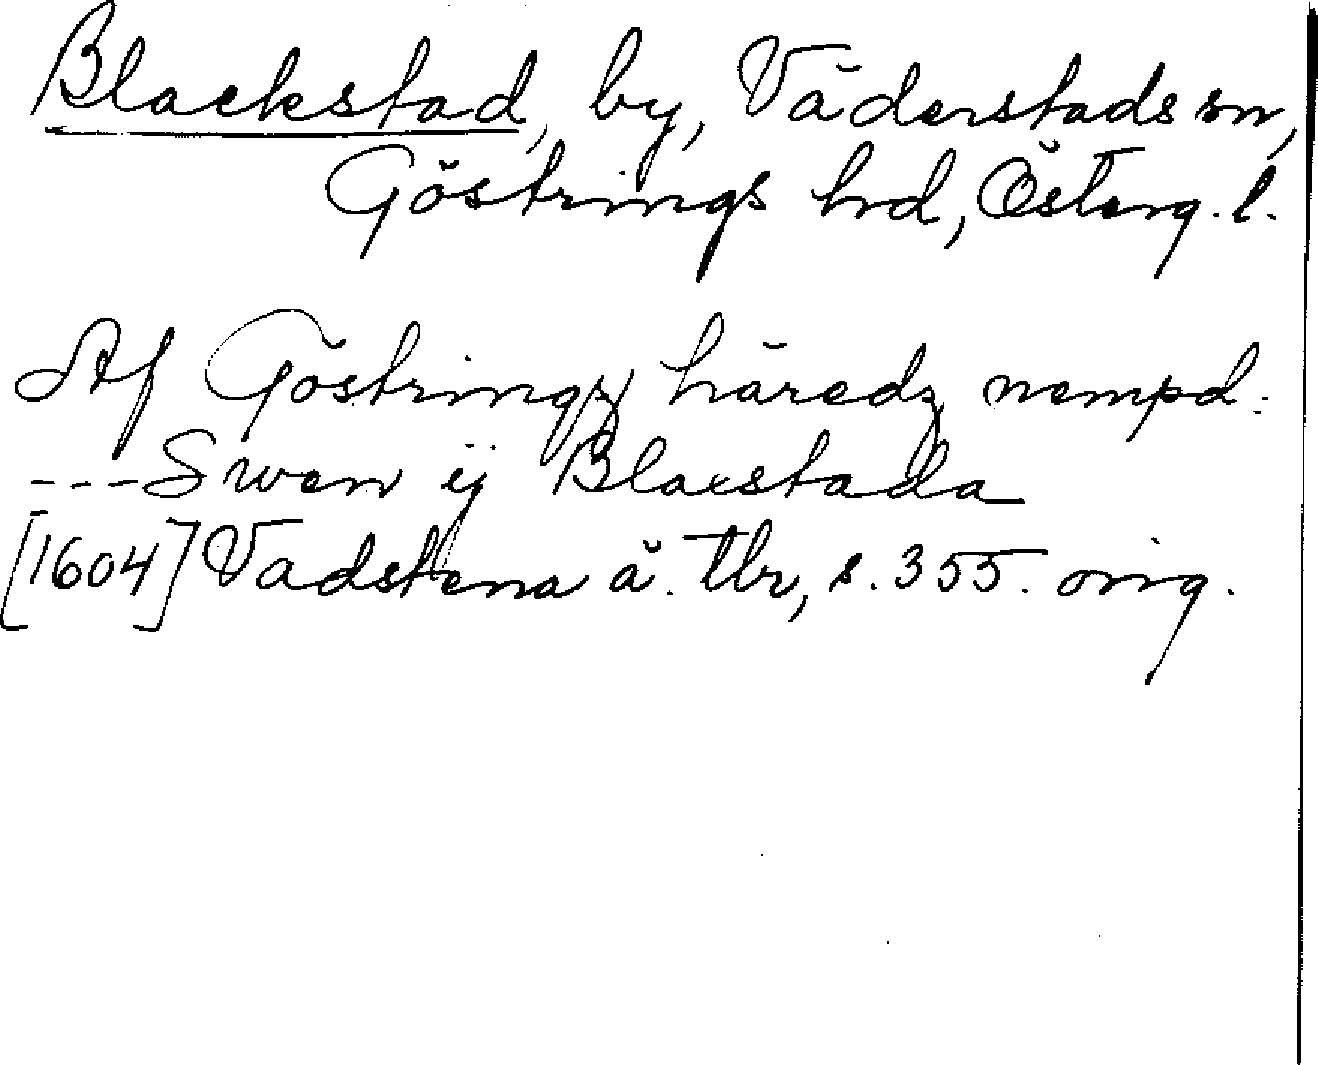 Blackstad, by, Väderstads sn,
Göstrings hrd, Österg. l.
Af Göstringz häredz nempd:
---Swen ij Blacstada
[1604] Vadstena ä. tbr, s. 355. orig.